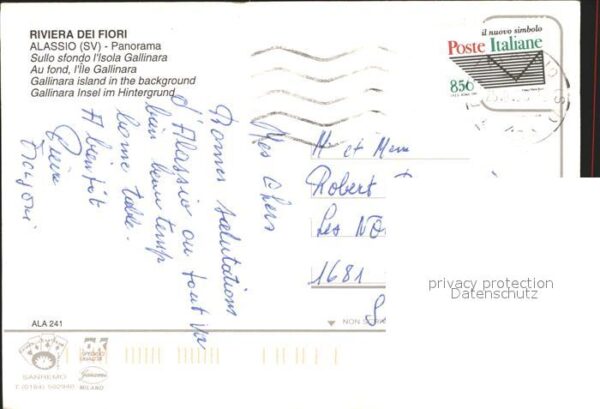 RIVIERA DEI FIORI
ALASSIO (SV) - Panorama
Sullo sfondo l'Isola Gallinara
Au fond, l'Île Gallinara
Gallinara island in the background
Gallinara Insel im Hintergrund
il nuovo simbolo
Poste Italiane
850
Mes chers
Bonnes salutations
d'Alassio ou tout va
bien beau temps
bonne table.
A bientôt
Mr et Mme
Robert
Les
1681
privacy protection
Datenschutz
ALA 241
NON
SANREMO
MILANO